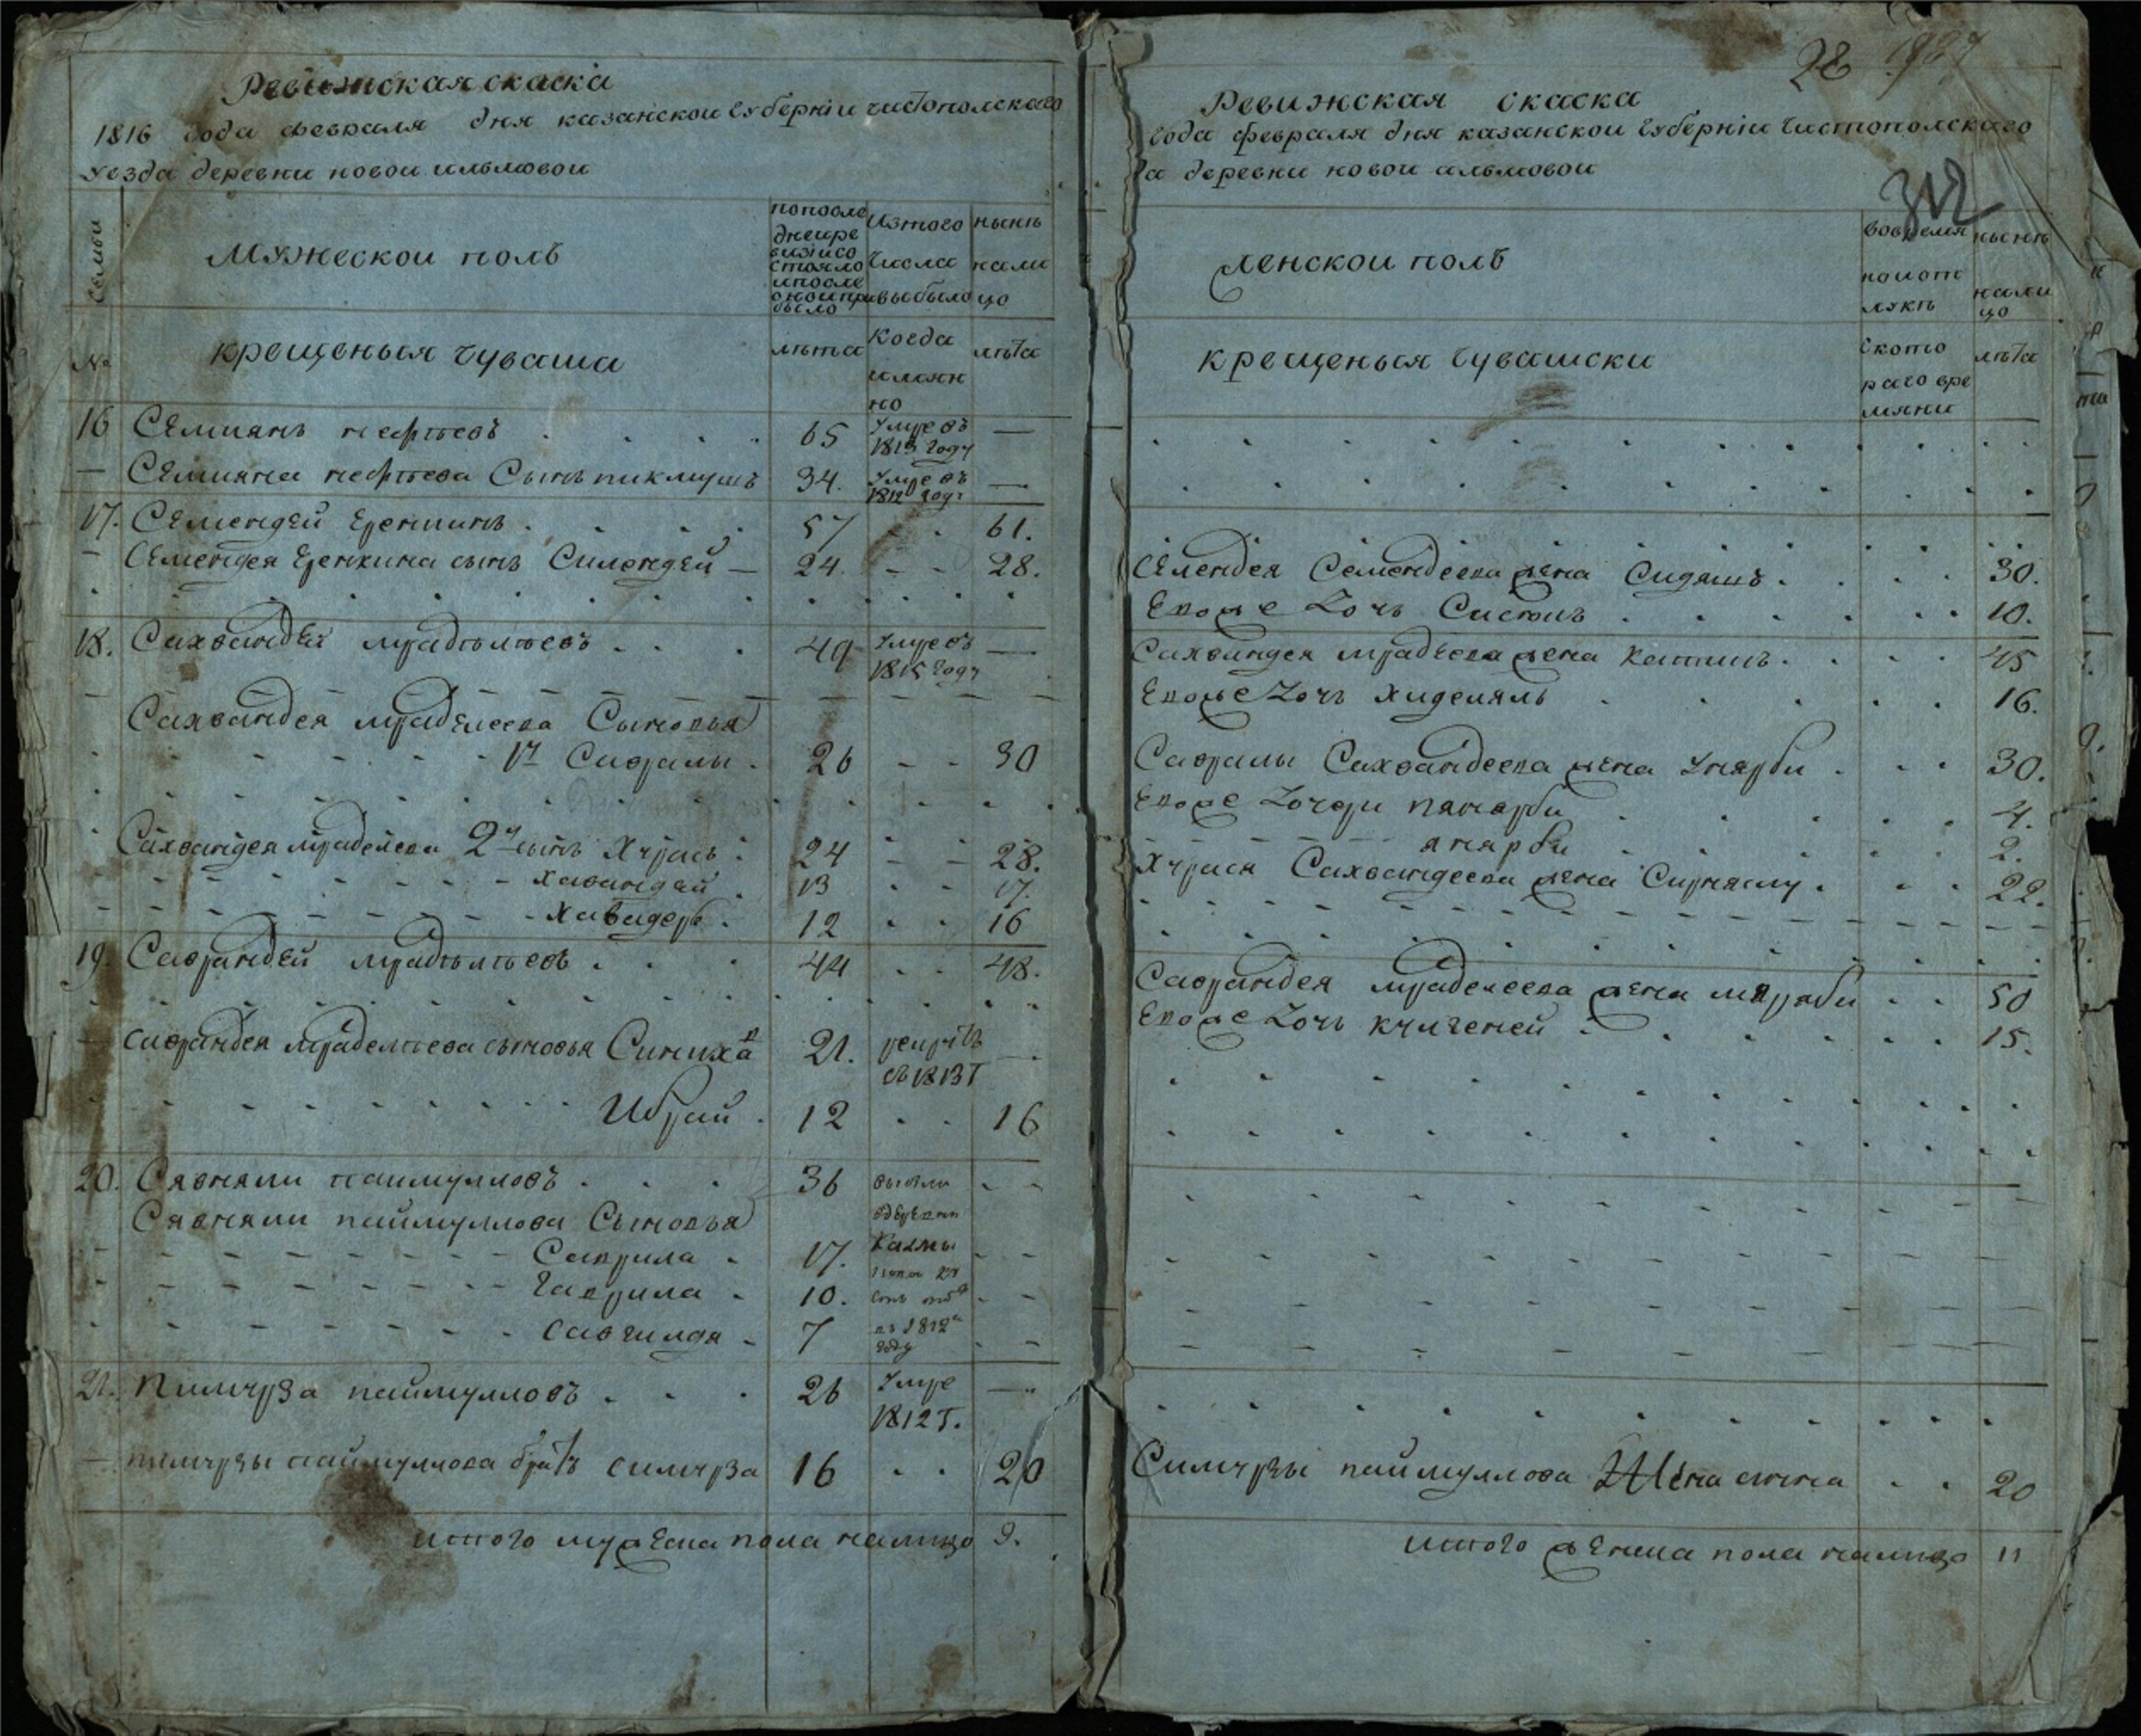 Ревижская скаска
1816 года февраля дня казанскои губернiи чистополскаго
уезда деревни новои ильмовои
Семьи
Мужескои полъ
попосле
днеире
визiисо
стояло
ипосле
оноипри
было
Изтого
числа
выбыло
нынѣ
нали
цо
№
крещеныя чуваша
лѣта
когда
имянн
но
лѣта
16 Семиянъ . . . 65 Умре въ 1813 году —
— Семияна Сынъ пикмушъ 34. Умре въ 1812 году —
17. Семендей Еренкинъ . . . 57 - - 61.
— Семендея Еренкина сынъ Силендей — 24. - - 28.
18. Сахвандей мрадѣлѣевъ . . . 49 Умре въ 1815 году —
Сахвандея мраделеева Сыновья
1й Савралы . 26 - - 30
Сахвандея мраделеева 2й сынъ Хурась . 24 - - 28.
Хавандей . 13 - - 17.
Хавадеръ . 12 - - 16
19. Саврандей мрадѣлѣевъ . . . 44 . . 48.
саврандея мраделѣева сыновья 21. рекрутъ въ 1813 Г —
Ибрай . 12 - - 16
20. Савняли паимулловъ . . . 36 - -
Савняли паймуллова Сыновья
Саврила . 17. - -
Гаврила . 10. - -
Савгилдя . 7 - -
въ 1812м
году
21. Пимурза паймулловъ . . . 26 Умре 1812 Г. —
— пимурзы паймуллова братъ симурза 16 . . 20
итого мужеска пола налицо 9.
28 1927
Ревижская скаска
года февраля дня казанскои губернiи Чистополскаго
да деревни новои альмовои
312
женскои полъ
вовремя
наиот
лукѣ
нынѣ
нали
цо
крещеныя Чувашски
ското
раго вре
мяни
лѣта
Селендея Семендеева жена Сидяшъ . . . . 30.
Ево же дочь . . . . 10.
Сахвандея мрадеева жена . . . . 45
Ево же дочь Хиделяль . . . . 16.
Савралы Сахвандеева жена Унярби . . . 30.
Ево же дочери панарби . . . 4.
янарби . . . 2.
Хурася Сахвандеева жена Сирняслу . . . 22.
Саврандея мраделеева жена . . 50
Ево же дочь кулгеней . . . 15.
Симурзы паймуллова Жена . . 20
итого женска пола налицо 11